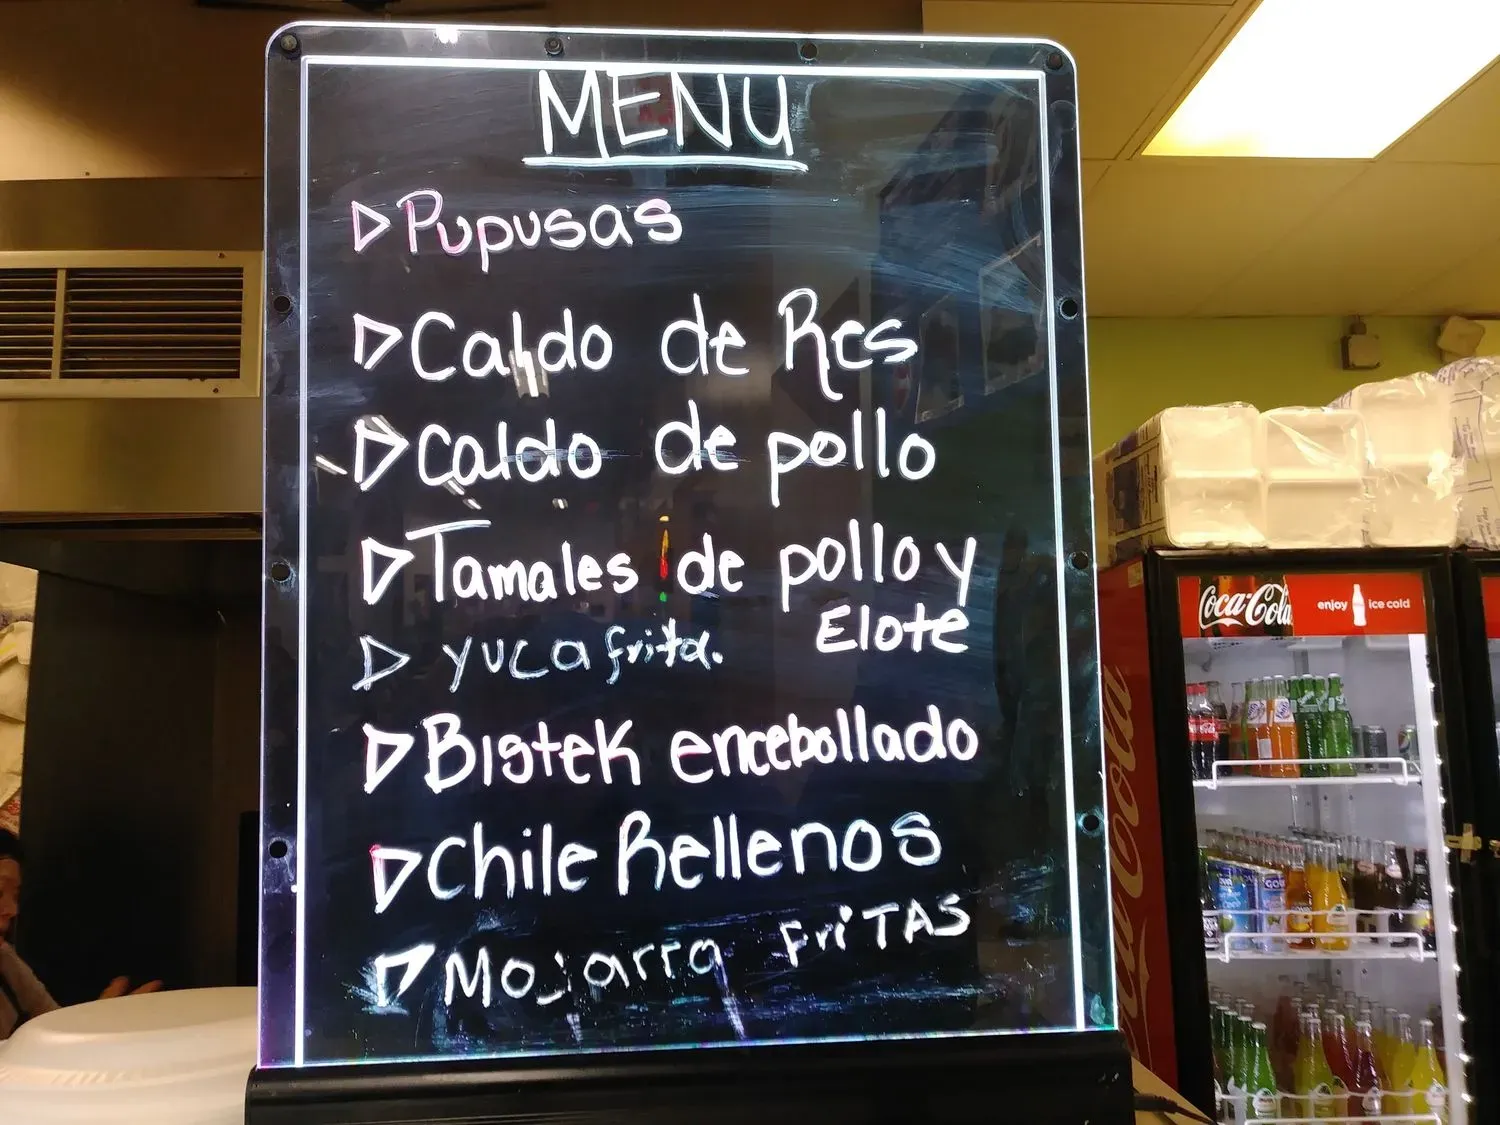 MENU
Pupusas
Caldo de Res
Caldo de pollo
Tamales de pollo y
Elote
yuca frita.
Bistek encebollado
Chile Rellenos
Mojarra FriTAS
Coca-Cola
enjoy ice cold
Coca-Cola